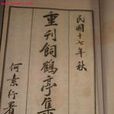 民國十七年秋
重刊飼鶴亭集
何素行署